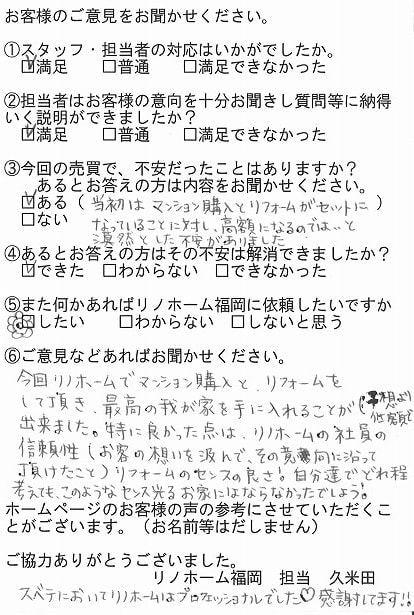 お客様のご意見をお聞かせください。
①スタッフ・担当者の対応はいかがでしたか。
☑満足　□普通　□満足できなかった
②担当者はお客様の意向を十分お聞きし質問等に納得
いく説明ができましたか？
☑満足　□普通　□満足できなかった
③今回の売買で、不安だったことはありますか？
あるとお答えの方は内容をお聞かせください。
☑ある（当初はマンション購入とリフォームがセットに）
□ない　なっていることに対し、高額になるのでは…と
漠然とした不安がありました
④あるとお答えの方はその不安は解消できましたか？
☑できた　□わからない　□できなかった
⑤また何かあればリノホーム福岡に依頼したいですか
☑したい　□わからない　□しないと思う
⑥ご意見などあればお聞かせください。
今回リノホームでマンション購入と、リフォームを
して頂き、最高の我が家を手に入れることが(予想より低額で
出来ました。特に良かった点は、リノホームの社員の
信頼性（お客の想いを汲んで、その意向に沿って
頂けたこと）リフォームのセンスの良さ！自分達でどれ程
考えても、このようなセンス光るお家にはならなかったでしょう！
ホームページのお客様の声の参考にさせていただくこ
とがございます。（お名前等はだしません）
ご協力ありがとうございました。
リノホーム福岡　担当　久米田
スベテにおいてリノホームはプロフェッショナルでした♡感謝してます!!